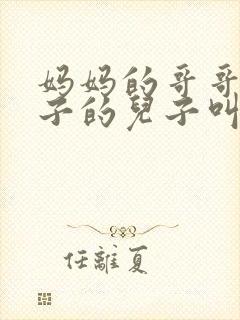 妈妈的哥哥
子的兒子叫
任離夏